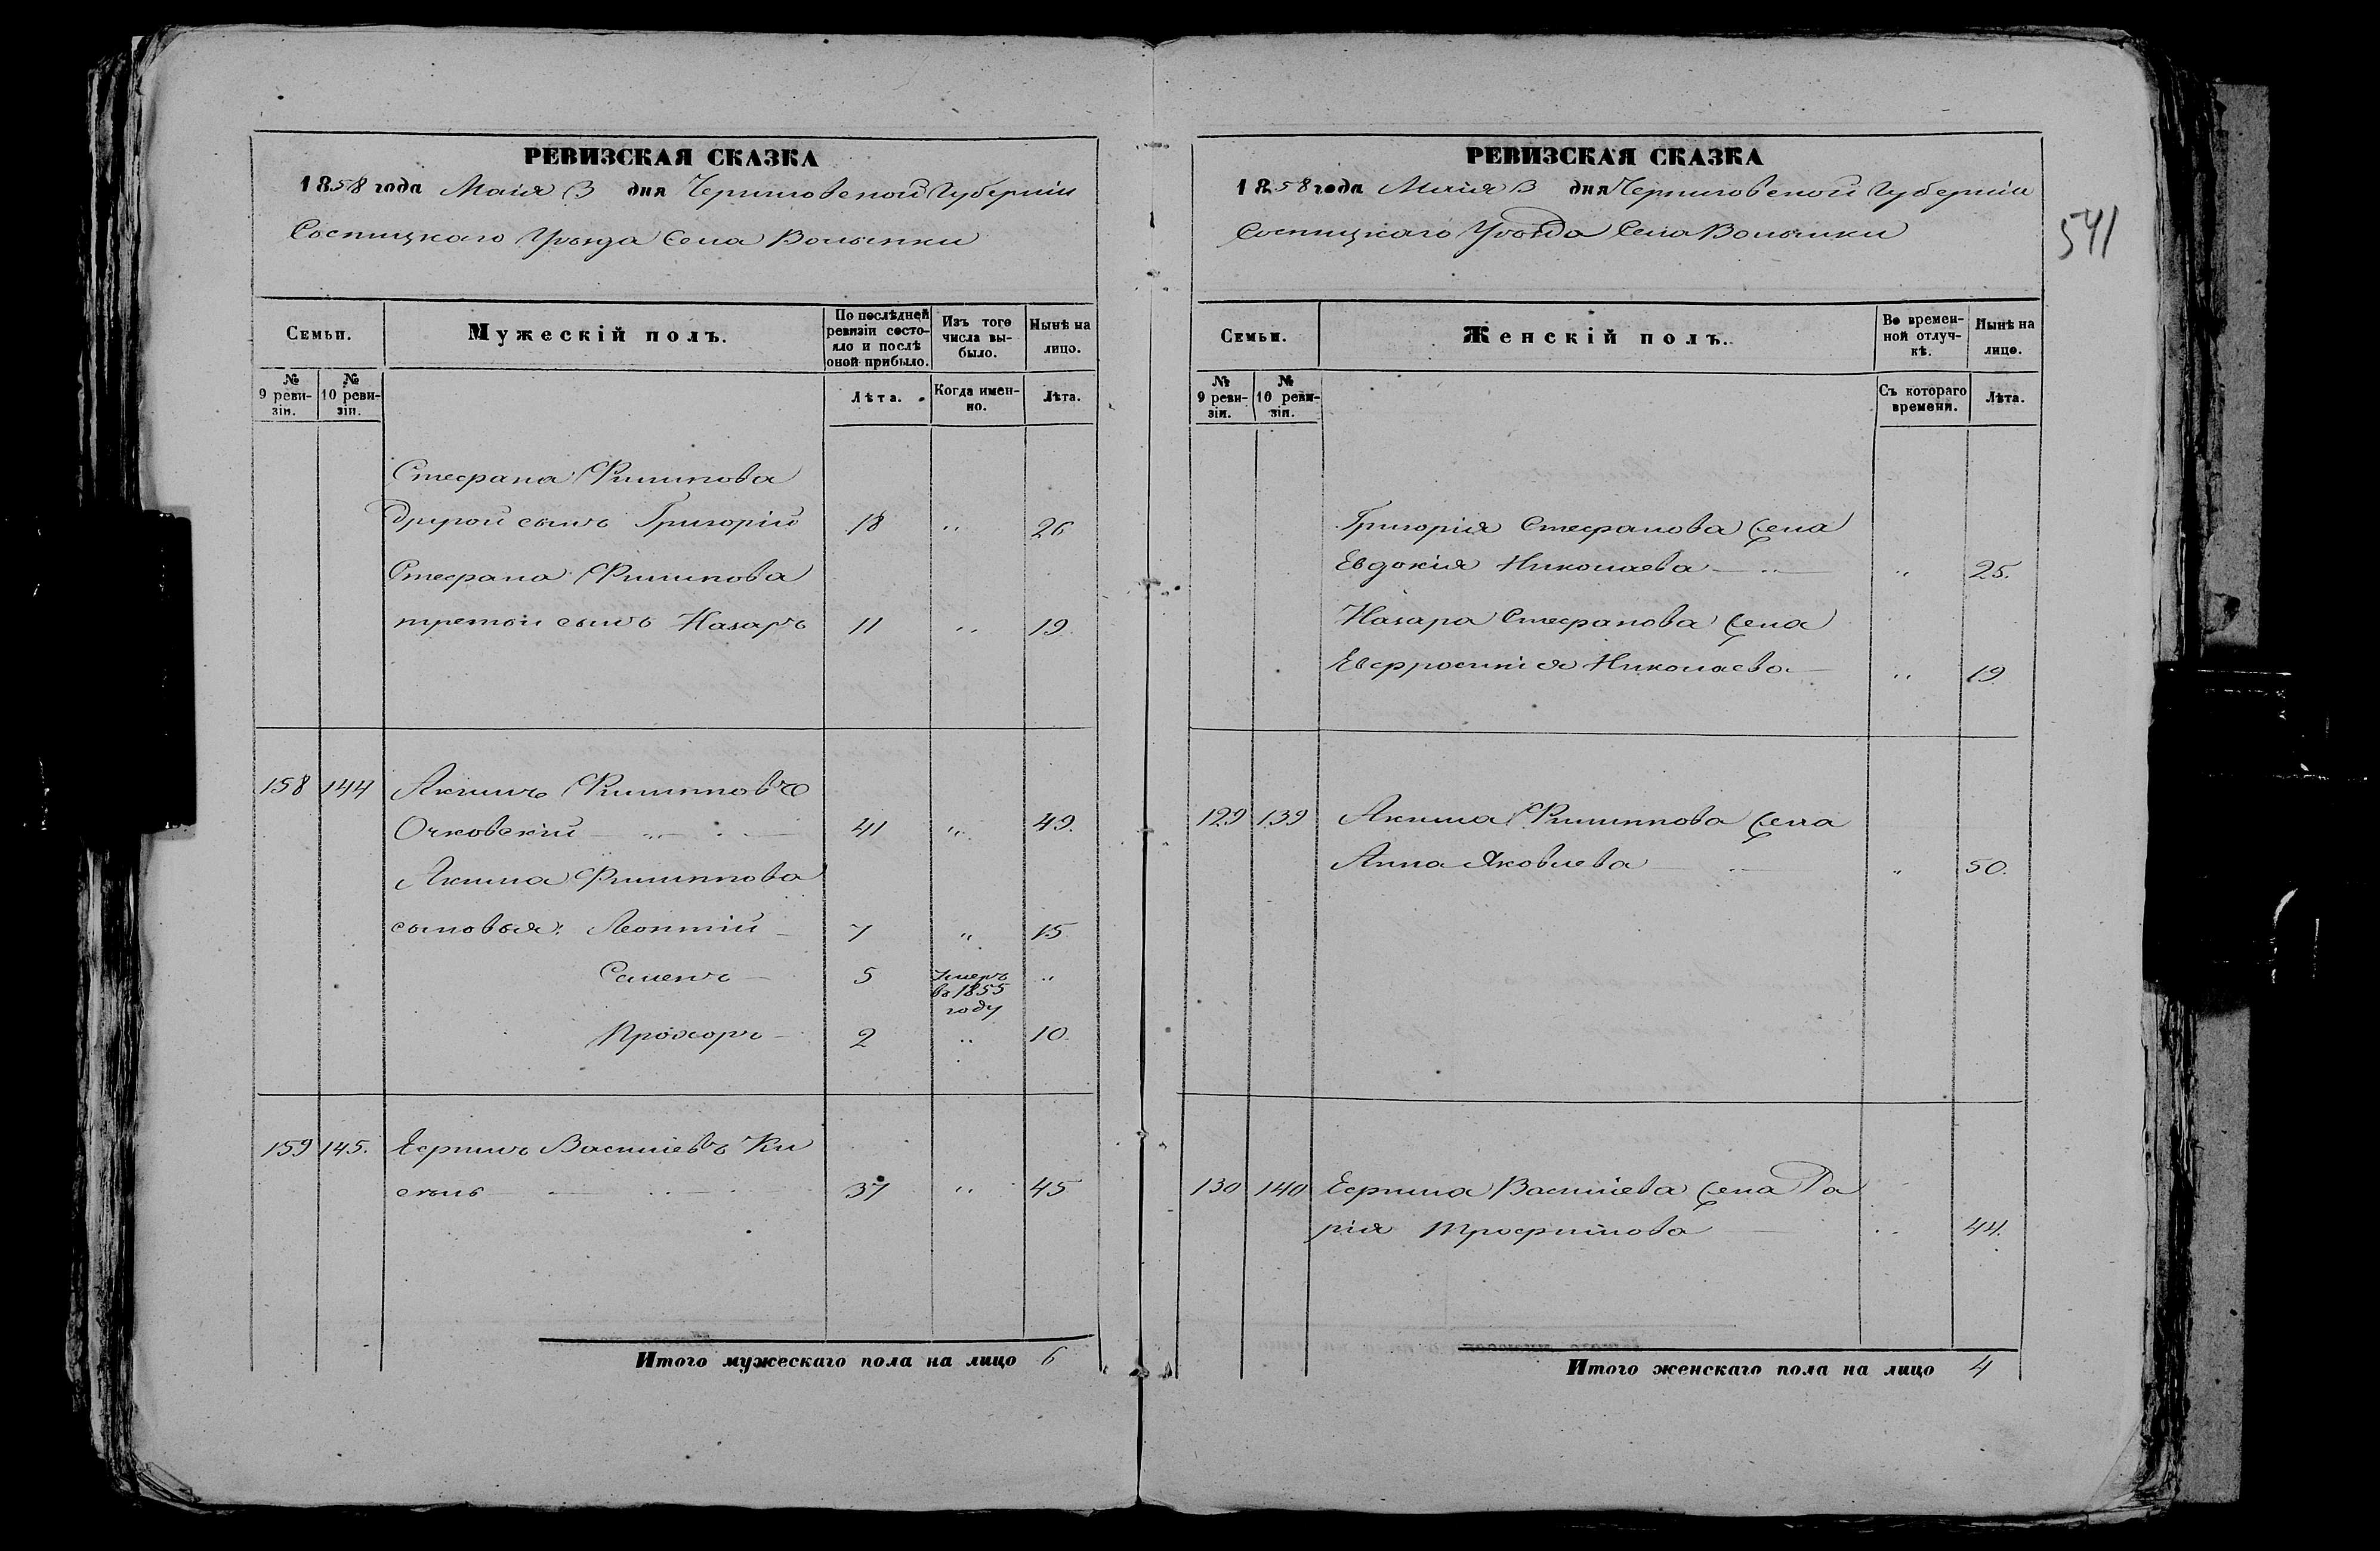 РЕВИЗСКАЯ СКАЗКА
1858 года Маія 3 дня Черниговской Губерніи
Сосницкаго Уѣзда Села Волынки
Семьи.
Мужескій полъ.
По послѣдней ревизіи состояло и послѣ оной прибыло.
Изъ того числа выбыло.
Нынѣ на лицо.
№ 9 ревизіи.
№ 10 ревизіи.
Лѣта.
Когда именно.
Лѣта.
Стефана Филипова
другой сынъ Григорій 18 " 26
Стефана Филипова
третьи сынъ Назаръ 11 " 19.
158 144 Акимъ Филипповъ
Очковскій 41 " 49.
Акима Филиппова
сыновья: Леонтій 7 " 15.
Семенъ 5 Умеръ въ 1855 году "
Прохоръ 2 " 10.
159 145. Ефимъ Васильевъ Ки
сель 37 " 45
Итого мужескаго пола на лицо 6
РЕВИЗСКАЯ СКАЗКА
1858 года Маія 3 дня Черниговской Губерніи
Сосницкаго Уѣзда Села Волынки
541
Семьи.
Женскій полъ.
Во временной отлучкѣ.
Нынѣ на лицо.
№ 9 ревизіи.
№ 10 ревизіи.
Съ котораго времени.
Лѣта.
Григорія Стефанова жена
Евдокія Николаева " 25.
Назара Стефанова жена
Евфросинія Николаева " 19.
129 139 Акима Филиппова жена
Анна Яковлева " 50.
130 140 Ефима Васильева жена Да
рія Трофимова " 44.
Итого женскаго пола на лицо 4